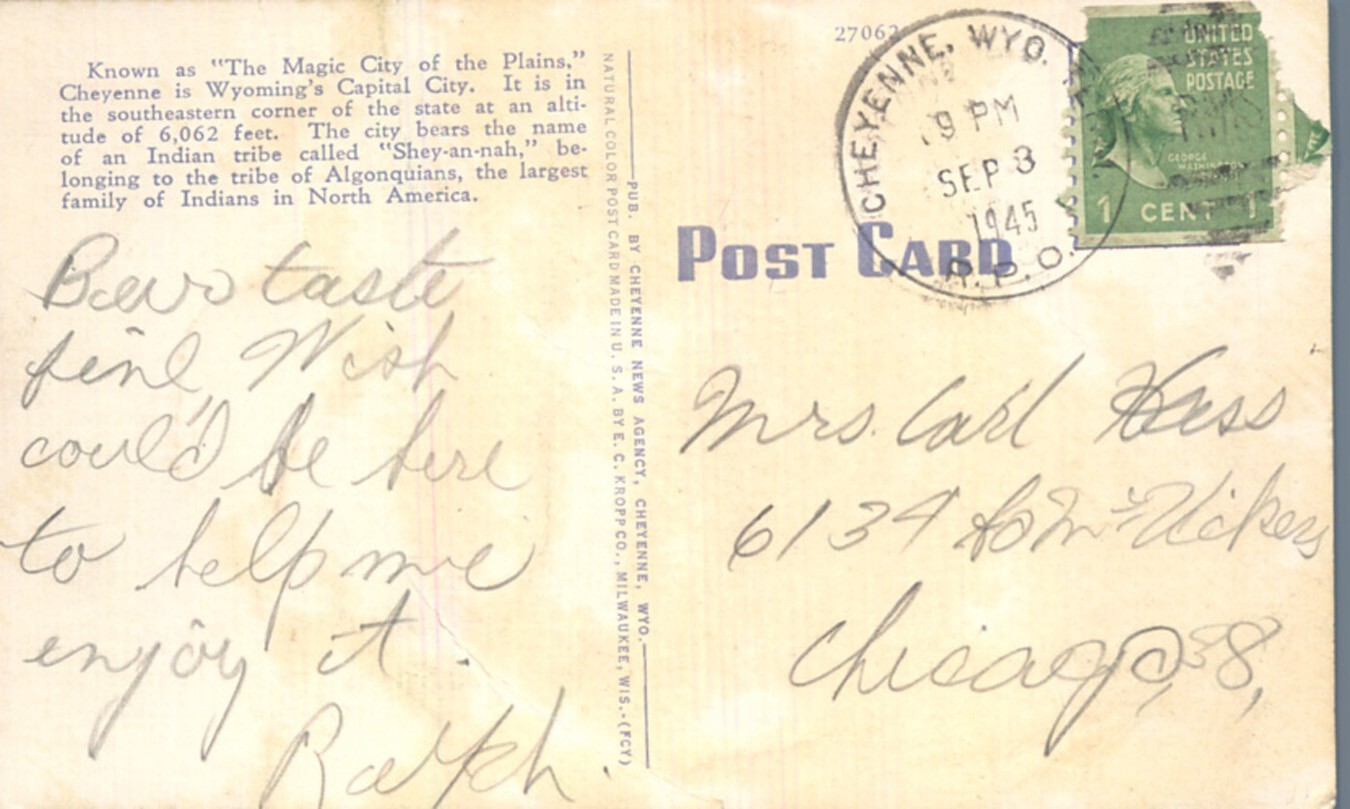 Known as "The Magic City of the Plains,"
Cheyenne is Wyoming's Capital City. It is in
the southeastern corner of the state at an alti-
tude of 6,062 feet. The city bears the name
of an Indian tribe called "Shey-an-nah," be-
longing to the tribe of Algonquians, the largest
family of Indians in North America.
taste
fine, Wish
could be here
to help me
enjoy it.
Ralph.
NATURAL COLOR POST CARD MADE IN U. S. A. BY E. C. KROPP CO., MILWAUKEE, WIS.-(FCY)
PUB. BY CHEYENNE NEWS AGENCY, CHEYENNE, WYO.
27062
CHEYENNE, WYO.
9 PM
SEP 3
1945
R.P.O.
UNITED
STATES
POSTAGE
GEORGE
WASHINGTON
1 CENT 1
POST CARD
Mrs. Carl Hess
6134 So
Chicago, 38,